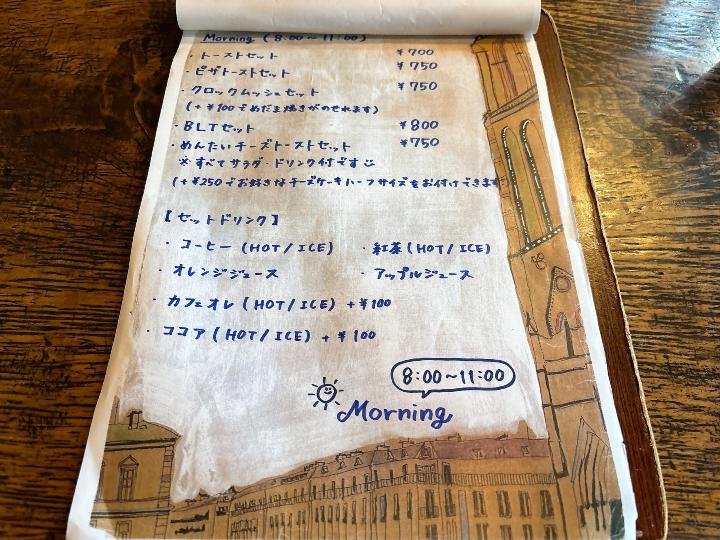 Morning (8:00〜11:00)
・トーストセット ¥700
・ピザトーストセット ¥750
・クロックムッシュセット ¥750
(+¥100でめだま焼きがのせれます)
・BLTセット ¥800
・めんたいチーズトーストセット ¥750
※すべてサラダ・ドリンク付です
(+¥250でお好きなチーズケーキハーフサイズをお付けできます
【セットドリンク】
・コーヒー (HOT/ICE) ・紅茶 (HOT/ICE)
・オレンジジュース ・アップルジュース
・カフェオレ (HOT/ICE) +¥100
・ココア (HOT/ICE) +¥100
8:00〜11:00
Morning